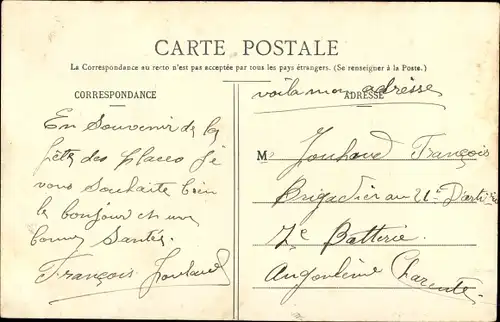 CARTE POSTALE
La Correspondance au recto n'est pas acceptée par tous les pays étrangers. (Se renseigner à la Poste.)
CORRESPONDANCE
En Souvenir de la
fête des places Je
vous Souhaite bien
le bonjour et une
bonne Santée.
François Jouhaud
voila mon adrèsse
ADRESSE
M Jouhaud François
Brigadier au 21e D'artie
7e Batterie.
Angoulème Charente